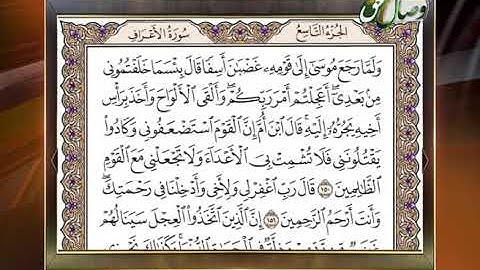 وصال حق
الجزء التاسع
سورة الأعراف
وَلَمَّا رَجَعَ مُوسَىٰٓ إِلَىٰ قَوْمِهِۦ غَضْبَٰنَ أَسِفًا قَالَ بِئْسَمَا خَلَفْتُمُونِى
مِنۢ بَعْدِىٓ ۖ أَعَجِلْتُمْ أَمْرَ رَبِّكُمْ ۖ وَأَلْقَى ٱلْأَلْوَاحَ وَأَخَذَ بِرَأْسِ
أَخِيهِ يَجُرُّهُۥٓ إِلَيْهِ ۚ قَالَ ٱبْنَ أُمَّ إِنَّ ٱلْقَوْمَ ٱسْتَضْعَفُونِى وَكَادُوا۟
يَقْتُلُونَنِى فَلَا تُشْمِتْ بِىَ ٱلْأَعْدَآءَ وَلَا تَجْعَلْنِى مَعَ ٱلْقَوْمِ
ٱلظَّٰلِمِينَ ١٥٠ قَالَ رَبِّ ٱغْفِرْ لِى وَلِأَخِى وَأَدْخِلْنَا فِى رَحْمَتِكَ ۖ
وَأَنتَ أَرْحَمُ ٱلرَّٰحِمِينَ ١٥١ إِنَّ ٱلَّذِينَ ٱتَّخَذُوا۟ ٱلْعِجْلَ سَيَنَالُهُمْ